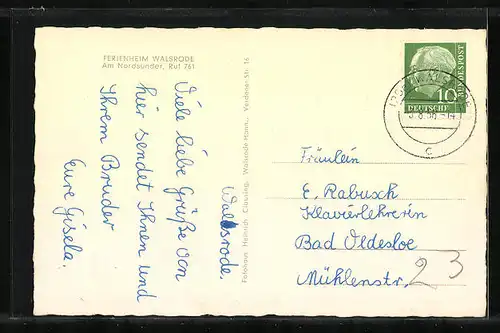 FERIENHEIM WALSRODE
Am Nordsunder, Ruf 761
Walsrode.
Viele liebe Grüße von
hier sendet Ihnen und
Ihrem Bruder
Eure Gisela.
Fotohaus Heinrich Clausing, Walsrode Hann., Verdener Str. 16
10
DEUTSCHE
BUNDESPOST
WALSRODE
c
Fräulein
E. Rabusch
Klavierlehrerin
Bad Oldesloe
Mühlenstr. 23